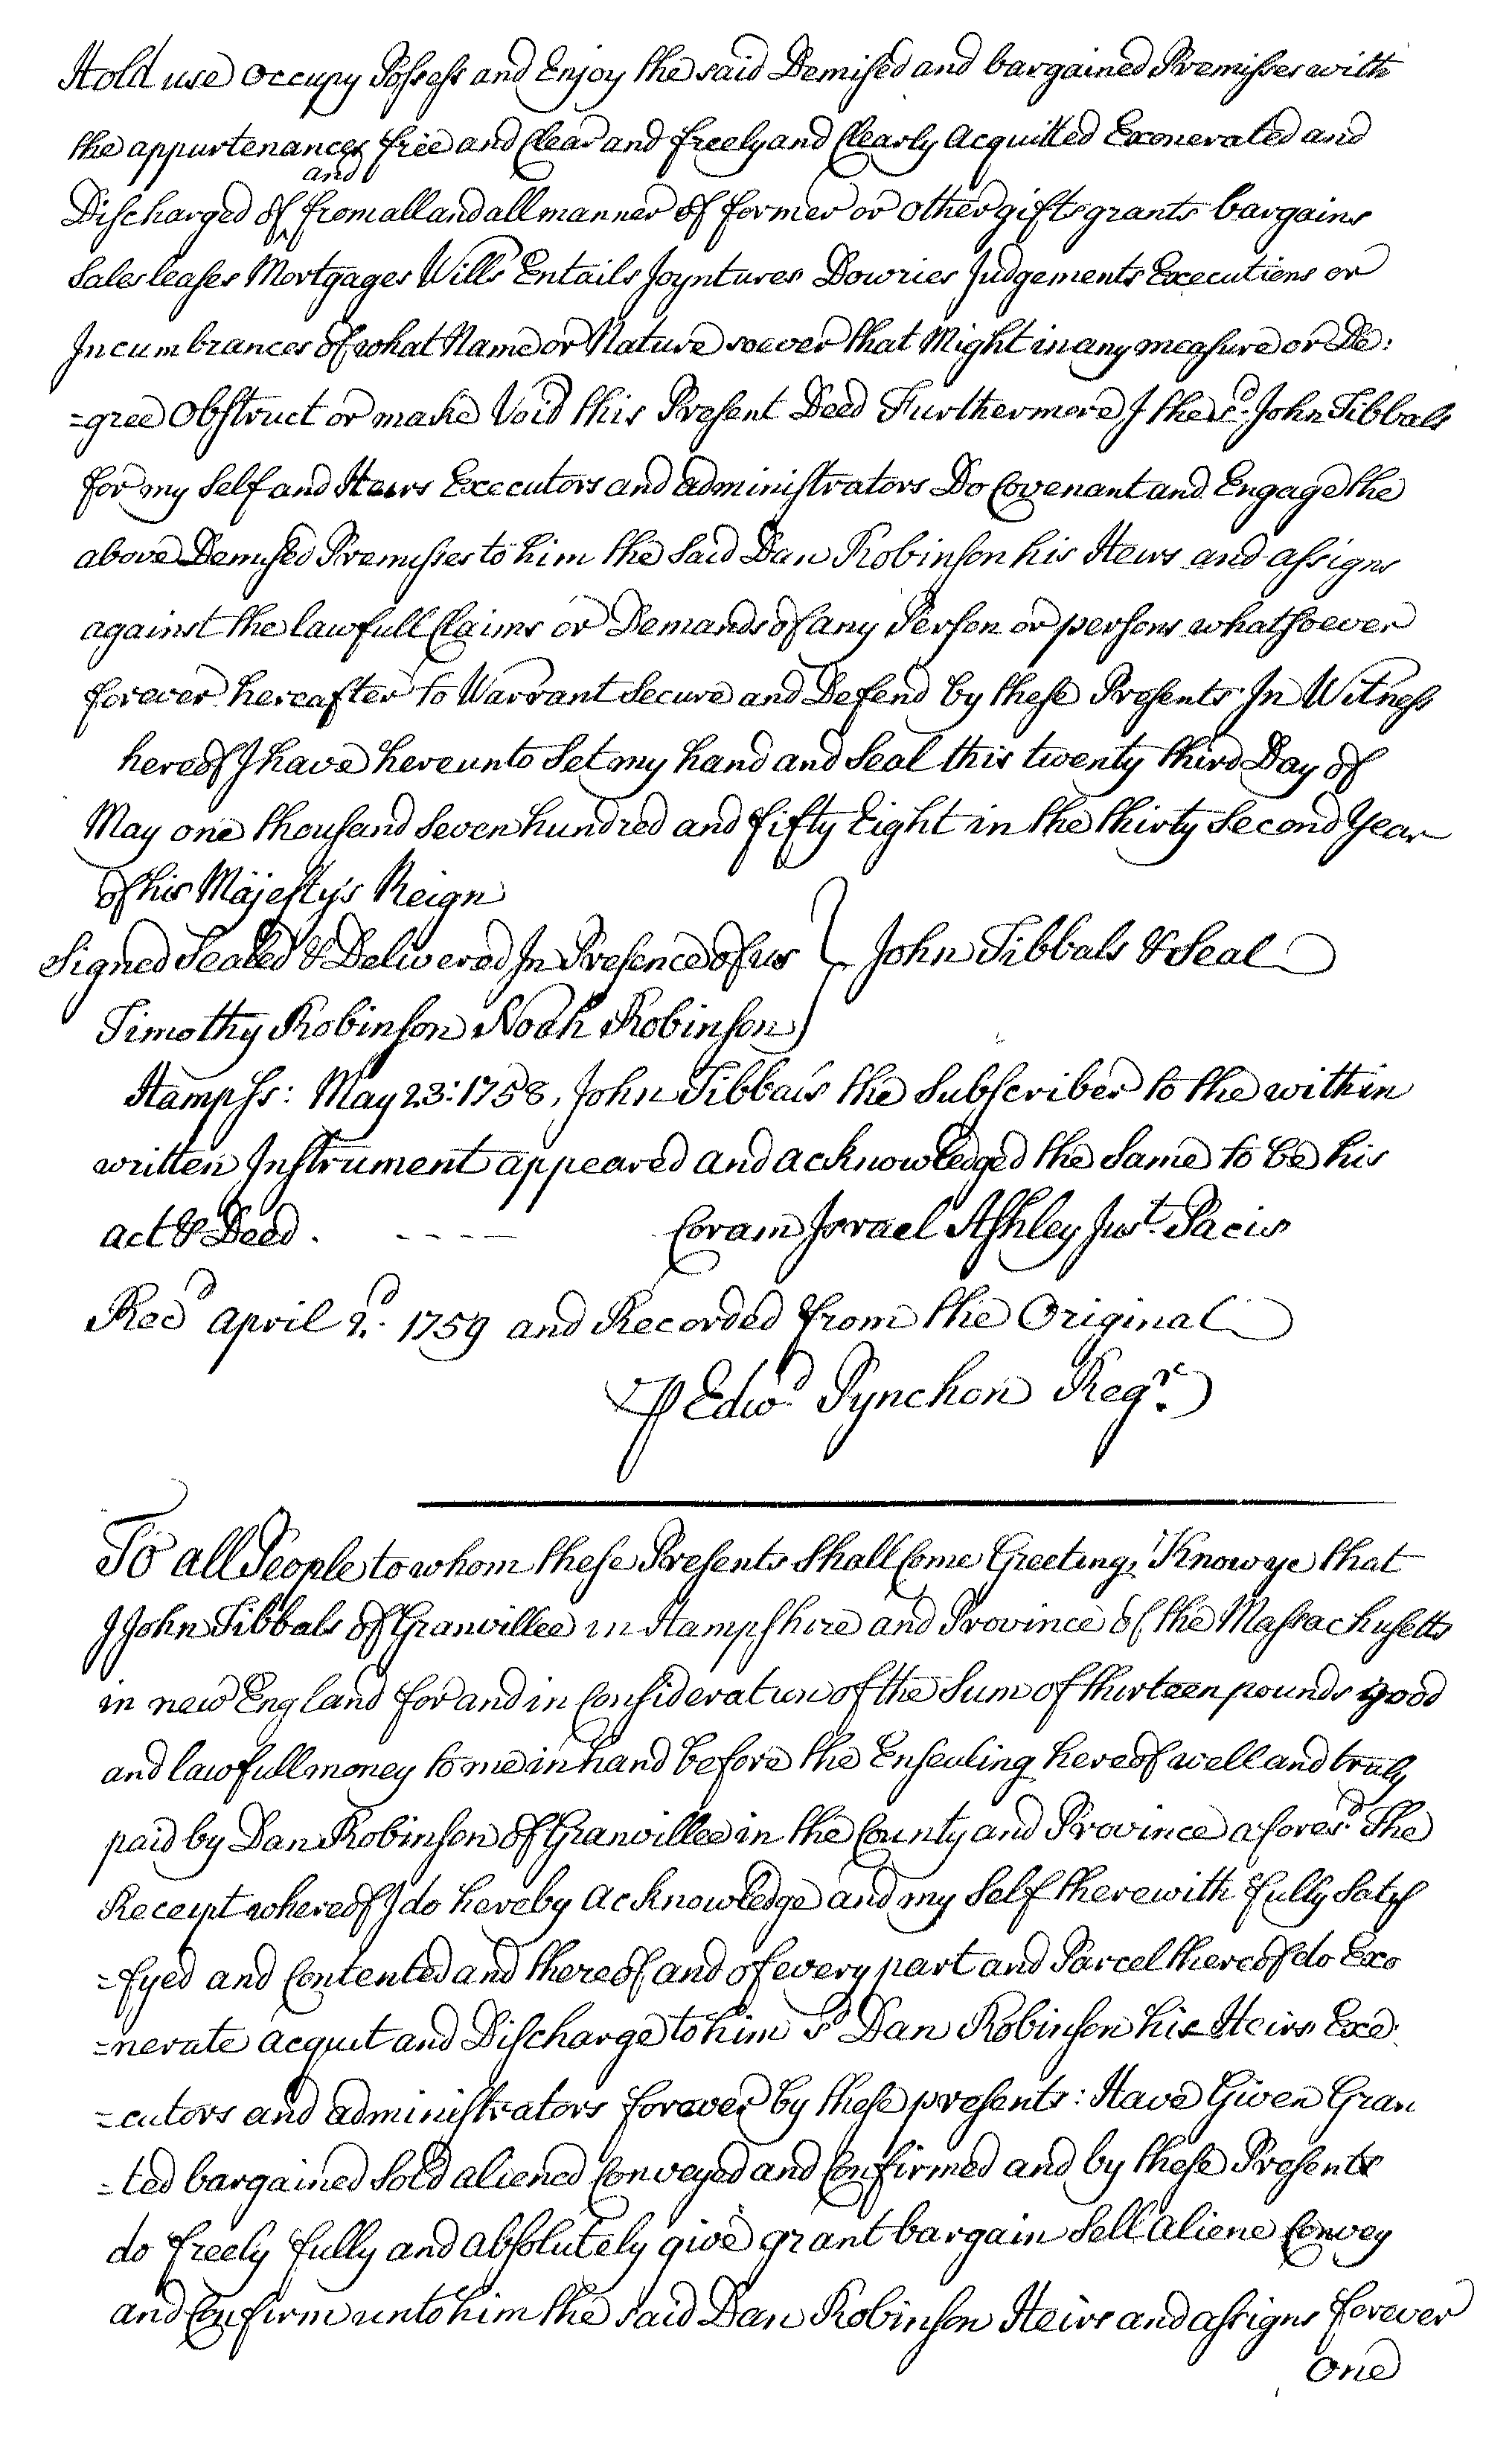 Hold use Occupy Possess and Enjoy the said Demised and bargained Premisses with
the appurtenances free and Clear and freely and Clearly Acquitted Exonerated and
and
Discharged of from all and all manner of former or other gifts grants bargains
Sales leases Mortgages Wills Entails Joyntures Dowries Judgements Executions or
Incumbrances of what Name or Nature soever that Might in any measure or De:
=gree Obstruct or make Void this Present Deed Furthermore I the sd. John Tibbals
for my Self and Heirs Executors and administrators Do Covenant and Engage the
above Demised Premisses to him the Said Dan Robinson his Heirs and assigns
against the lawfull Claims or Demands of any Person or persons whatsoever
forever hereafter to Warrant Secure and Defend by these Presents In Witness
hereof I have hereunto Set my hand and Seal this twenty third Day of
May one thousand Seven hundred and fifty Eight in the thirty Second Year
of his Majesty's Reign
Signed Sealed & Delivered In Presence of us } John Tibbals & Seal
Timothy Robinson Noah Robinson
Hampss: May 23: 1758, John Tibbals the Subscriber to the within
written Instrument appeared and acknowledged the Same to be his
act & Deed. - - - - Coram Israel Ashley Just. Pacis
Recd April 2d. 1759 and Recorded from the Original
⅌ Edwd. Pynchon Regr.
To all People to whom these Presents Shall Come Greeting, Know ye that
I John Tibbals of Granvillee in Hampshire and Province of the Massachusetts
in new England for and in Consideration of the Sum of thirteen pounds good
and lawfull money to me in hand before the Ensealing hereof well and truly
paid by Dan Robinson of Granvillee in the County and Province aforesd. The
Receipt whereof I do hereby acknowledge and my Self therewith fully Satis
=fyed and Contented and thereof and of every part and Parcel thereof do Exo
=nerate acquit and Discharge to him sd Dan Robinson his Heirs Exe:
=cutors and administrators forever by these presents: Have Given Gran
=ted bargained Sold aliened Conveyed and Confirmed and by these Presents
do freely fully and absolutely give grant bargain Sell aliene Convey
and Confirm unto him the said Dan Robinson Heirs and assigns forever
One